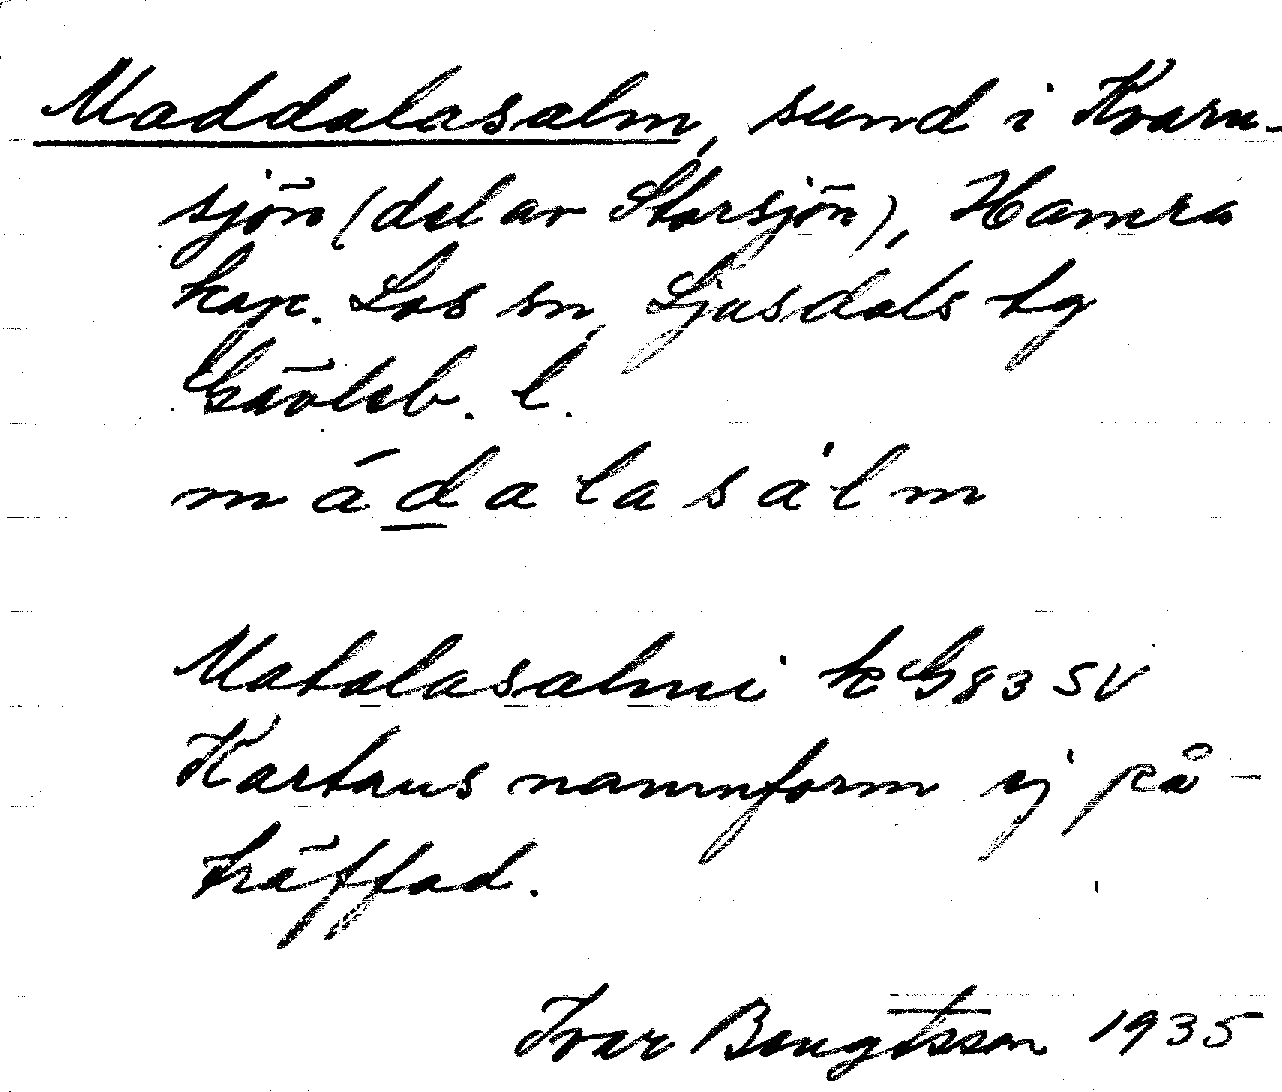 Maddalasalm, sund i Kvarn-
sjön (del av Storsjön), Hamra
kap. Los sn, Ljusdals tg
Gävleb. l.
má d a l a s a ̍ l m
Matalasalmi k G83 SV
Kartans namnform ej på-
träffad.
Ivar Bengtsson 1935